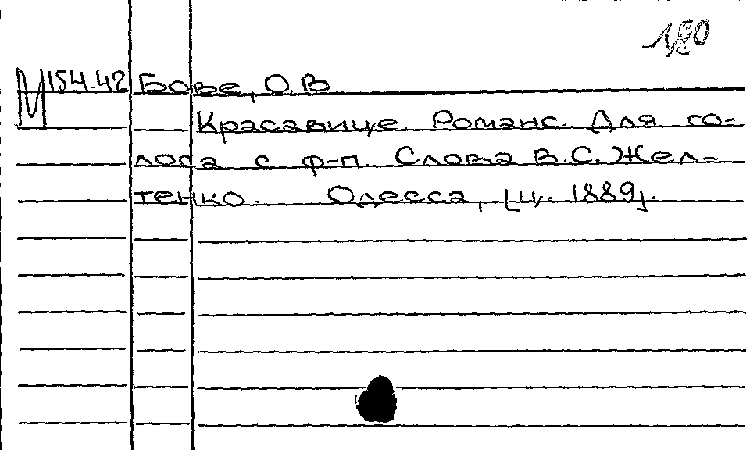 180
М 154.42 Бове, О.В.
Красавице. Романс. Для го-
лоса с ф-п. Слова В.С. Жел-
тенко. Одесса, [ц. 1889].